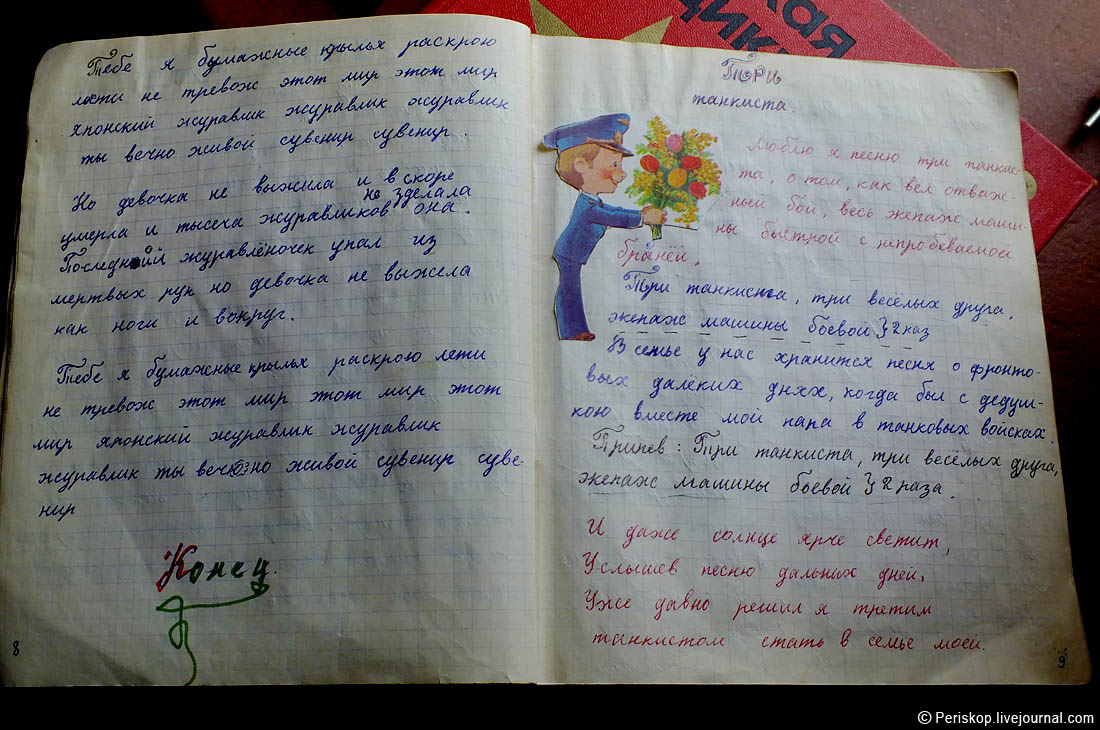 Тебе я бумажные крылья раскрою
лети не тревож этот мир этот мир
японский журавлик журавлик журавлик
ты вечно живой сувенир сувенир.
Но девочка не выжила и в скоре
умерла и тысеча журавликов не зделала она.
Последний журавлёночек упал из
мертвых рук но девочка не выжела
как ноги и вокруг.
Тебе я бумажные крылья раскрою лети
не тревож этот мир этот мир этот
мир японский журавлик журавлик
журавлик ты вечно живой сувенир суве-
нир
Конец.
8
ская
щик
Три
танкиста.
Люблю я песню три танкис-
та, о том, как вел отваж-
ный бой, весь экепаж маши-
ны быстрой с непробеваемой
бранёй,
Три танкиста, три весёлых друга,
экепаж машины боевой } 2 раз
В семье у нас хранится песня о фронто-
вых далёких днях, когда был с дедуш-
кою вместе мой папа в танковых войсках.
Припев: Три танкиста, три весёлых друга,
экепаж машины боевой } 2 раза.
И даже солнце ярче светит,
Услышев песню дальних дней,
Уже давно решил я третим
танкистом стать в семье моей.
9
© Periskop.livejournal.com